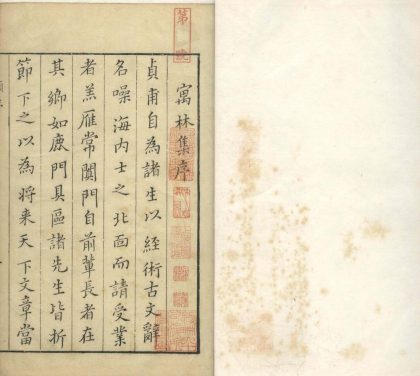 寓林集序
貞甫自為諸生以經術古文辭
名噪海内士之北面而請受業
者羔雁常闐門自前輩長者在
其鄉如鹿門具區諸先生皆折
節下之以為將来天下文章當
第
號